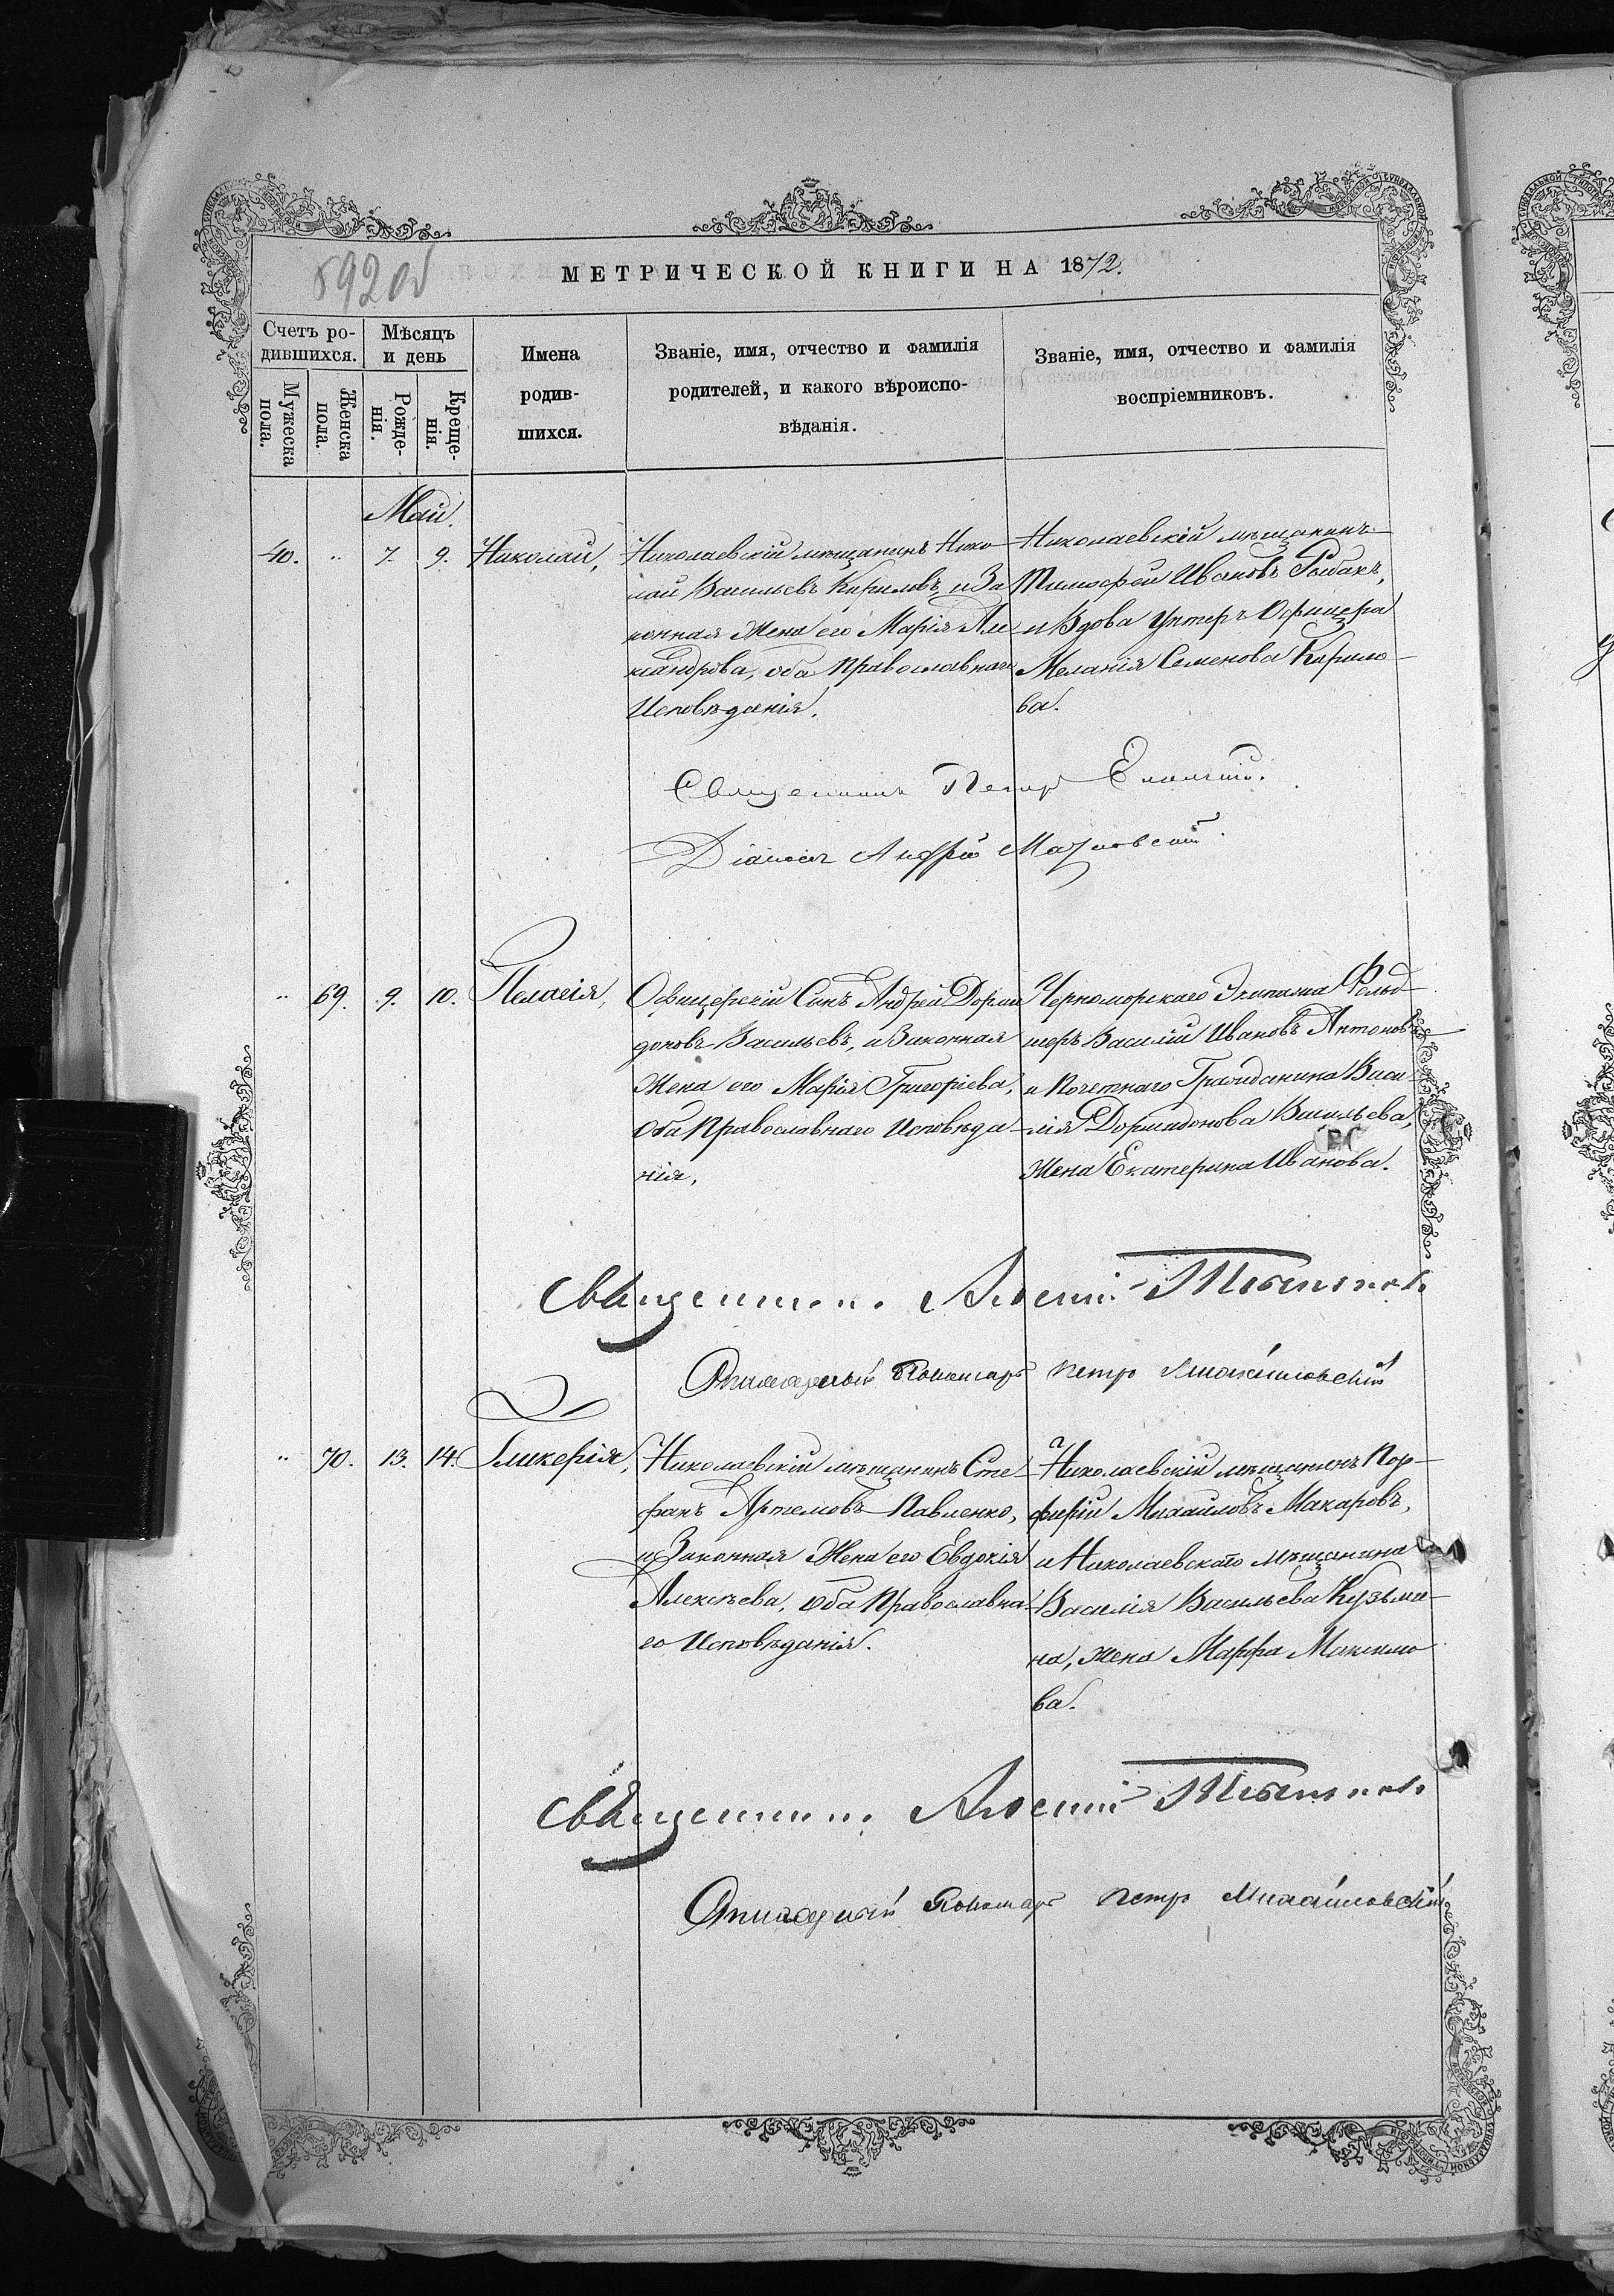 592 об
МЕТРИЧЕСКОЙ КНИГИ НА 1872.
Счетъ ро-
дившихся.
Мужеска
пола.
Женска
пола.
Мѣсяцъ
и день
Рожде-
нія.
Креще-
нія.
Имена
родив-
шихся.
Званіе, имя, отчество и фамилія
родителей, и какого вѣроиспо-
вѣданія.
Званіе, имя, отчество и фамилія
воспріемниковъ.
Май.
40. " 7. 9. Николай,
Николаевскій мѣщанинъ Нико-
лай Васильевъ Кириловъ, и За
конная Жена его Марія Але-
ксандрова, оба Православнаго
Исповѣданія.
Николаевскій мѣщанинъ
Тимофей Ивановъ Рыбакъ,
и Вдова Унтеръ Офицера
Меланія Семенова Кирило-
ва.
Священникъ Петръ
Діаконъ Андрей
" 69. 9. 10. Пелагія,
Офицерскій Сынъ Андрей Дорми
доновъ Васильевъ, и Законная
Жена его Марія Григоріева,
Оба Православнаго Исповѣда-
нія,
Черноморскаго Экипажа Фельд-
шеръ Василій Ивановъ Антоновъ
и Почетнаго Гражданина Васи-
лія Дормидонова Васильева,
Жена Екатерина Иванова.
Священникъ
Пономарь Петръ Михайловскій
" 70. 13. 14. Гликерія,
Николаевскій мѣщанинъ Сте-
фанъ Артемовъ Павленко,
и Законная Жена его Евдокія
Алексѣева, оба Православна-
го Исповѣданія.
Николаевскій мѣщанинъ Пор-
фирій Михаиловъ Макаровъ,
и Николаевскаго мѣщанина
Василія Васильева Кузьми-
на, жена Марфа Максимо
ва.
Священникъ
Пономарь Петръ Михайловскій